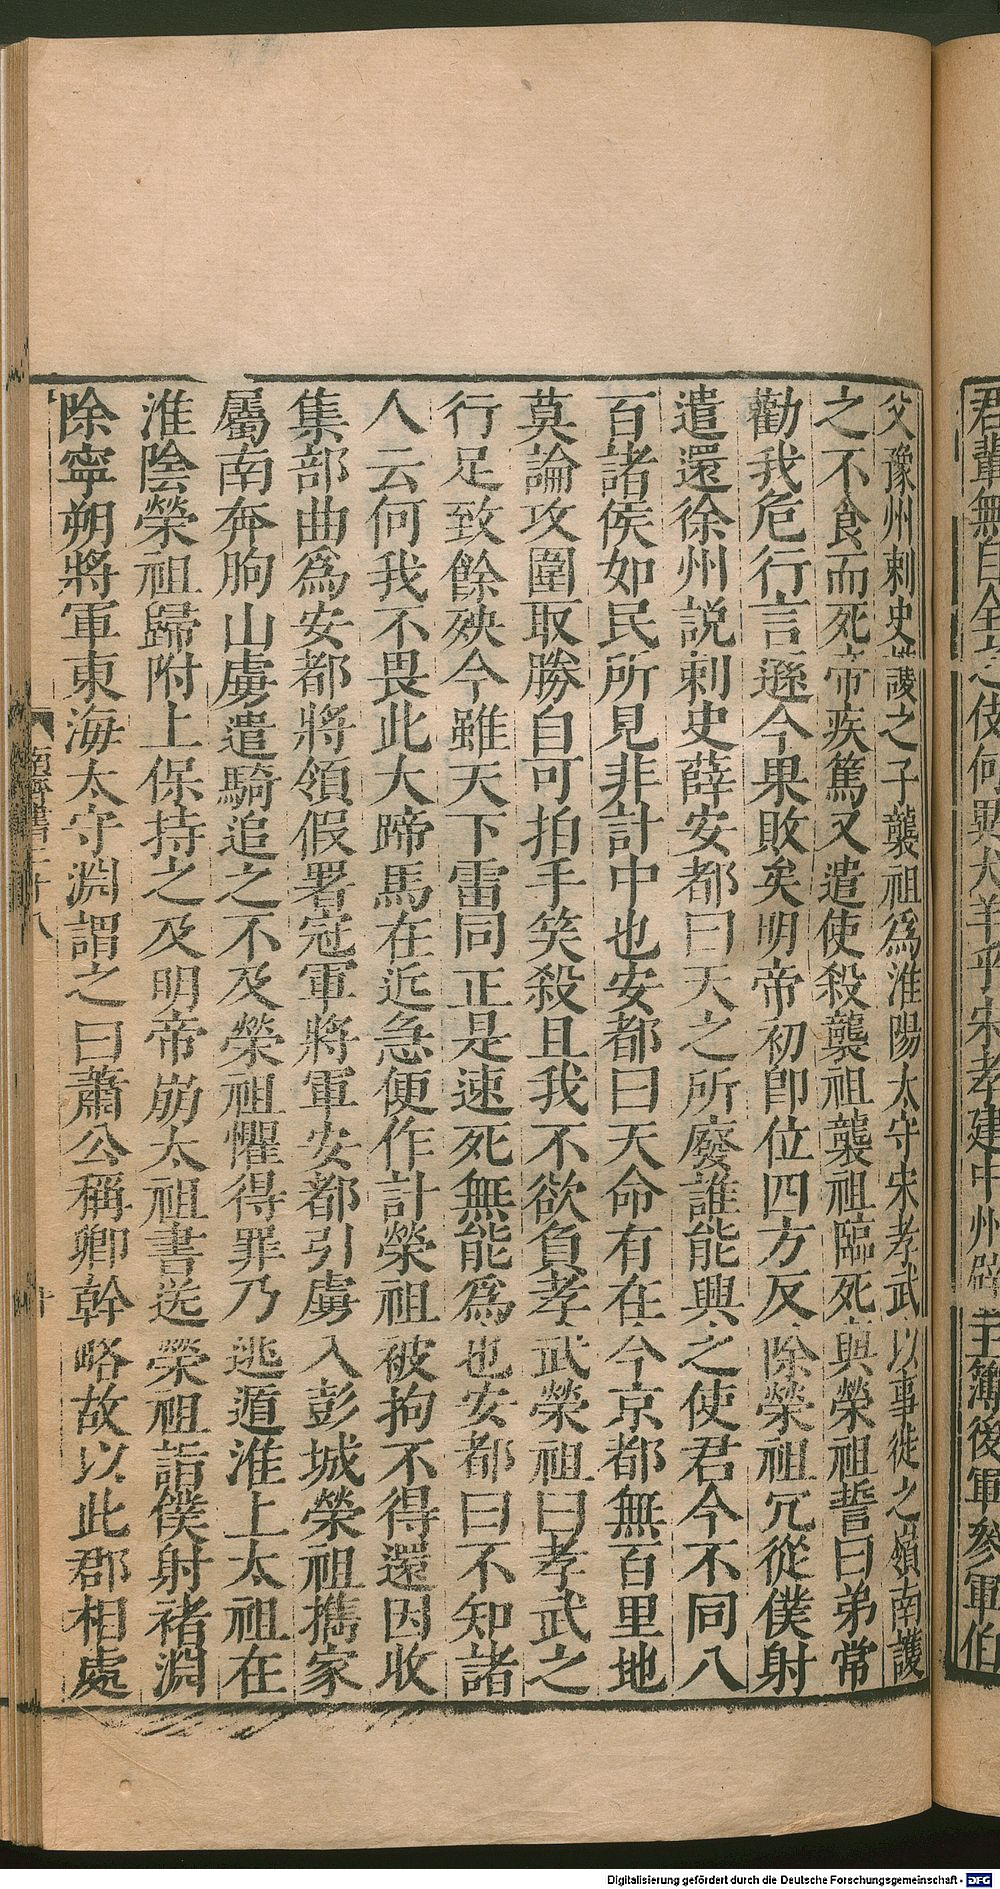 君輩無自全之伎何異犬羊乎宋孝建中州辟主簿後軍參軍伯
父豫州刺史護之子襲祖爲淮陽太守宋孝武以事徙之嶺南護
之不食而死帝疾篤又遣使殺襲祖襲祖臨死與榮祖誓曰弟常
勸我危行言遜今果敗矣明帝初即位四方反除榮祖冗從僕射
遣還徐州説刺史薛安都曰天之所廢誰能興之使君今不同八
百諸侯如民所見非計中也安都曰天命有在今京都無百里地
莫論攻圍取勝自可拍手笑殺且我不欲負孝武榮祖曰孝武之
行足致餘殃今雖天下雷同正是速死無能爲也安都曰不知諸
人云何我不畏此大蹄馬在近急便作計榮祖被拘不得還因收
集部曲爲安都將領假署冠軍將軍安都引虜入彭城榮祖攜家
屬南奔朐山虜遣騎追之不及榮祖懼得罪乃逃遁淮上太祖在
淮陰榮祖歸附上保持之及明帝崩太祖書送榮祖詣僕射褚淵
除寧朔將軍東海太守淵謂之曰蕭公稱卿幹略故以此郡相處
南齊書二十八
十
Digitalisierung gefördert durch die Deutsche Forschungsgemeinschaft - DFG